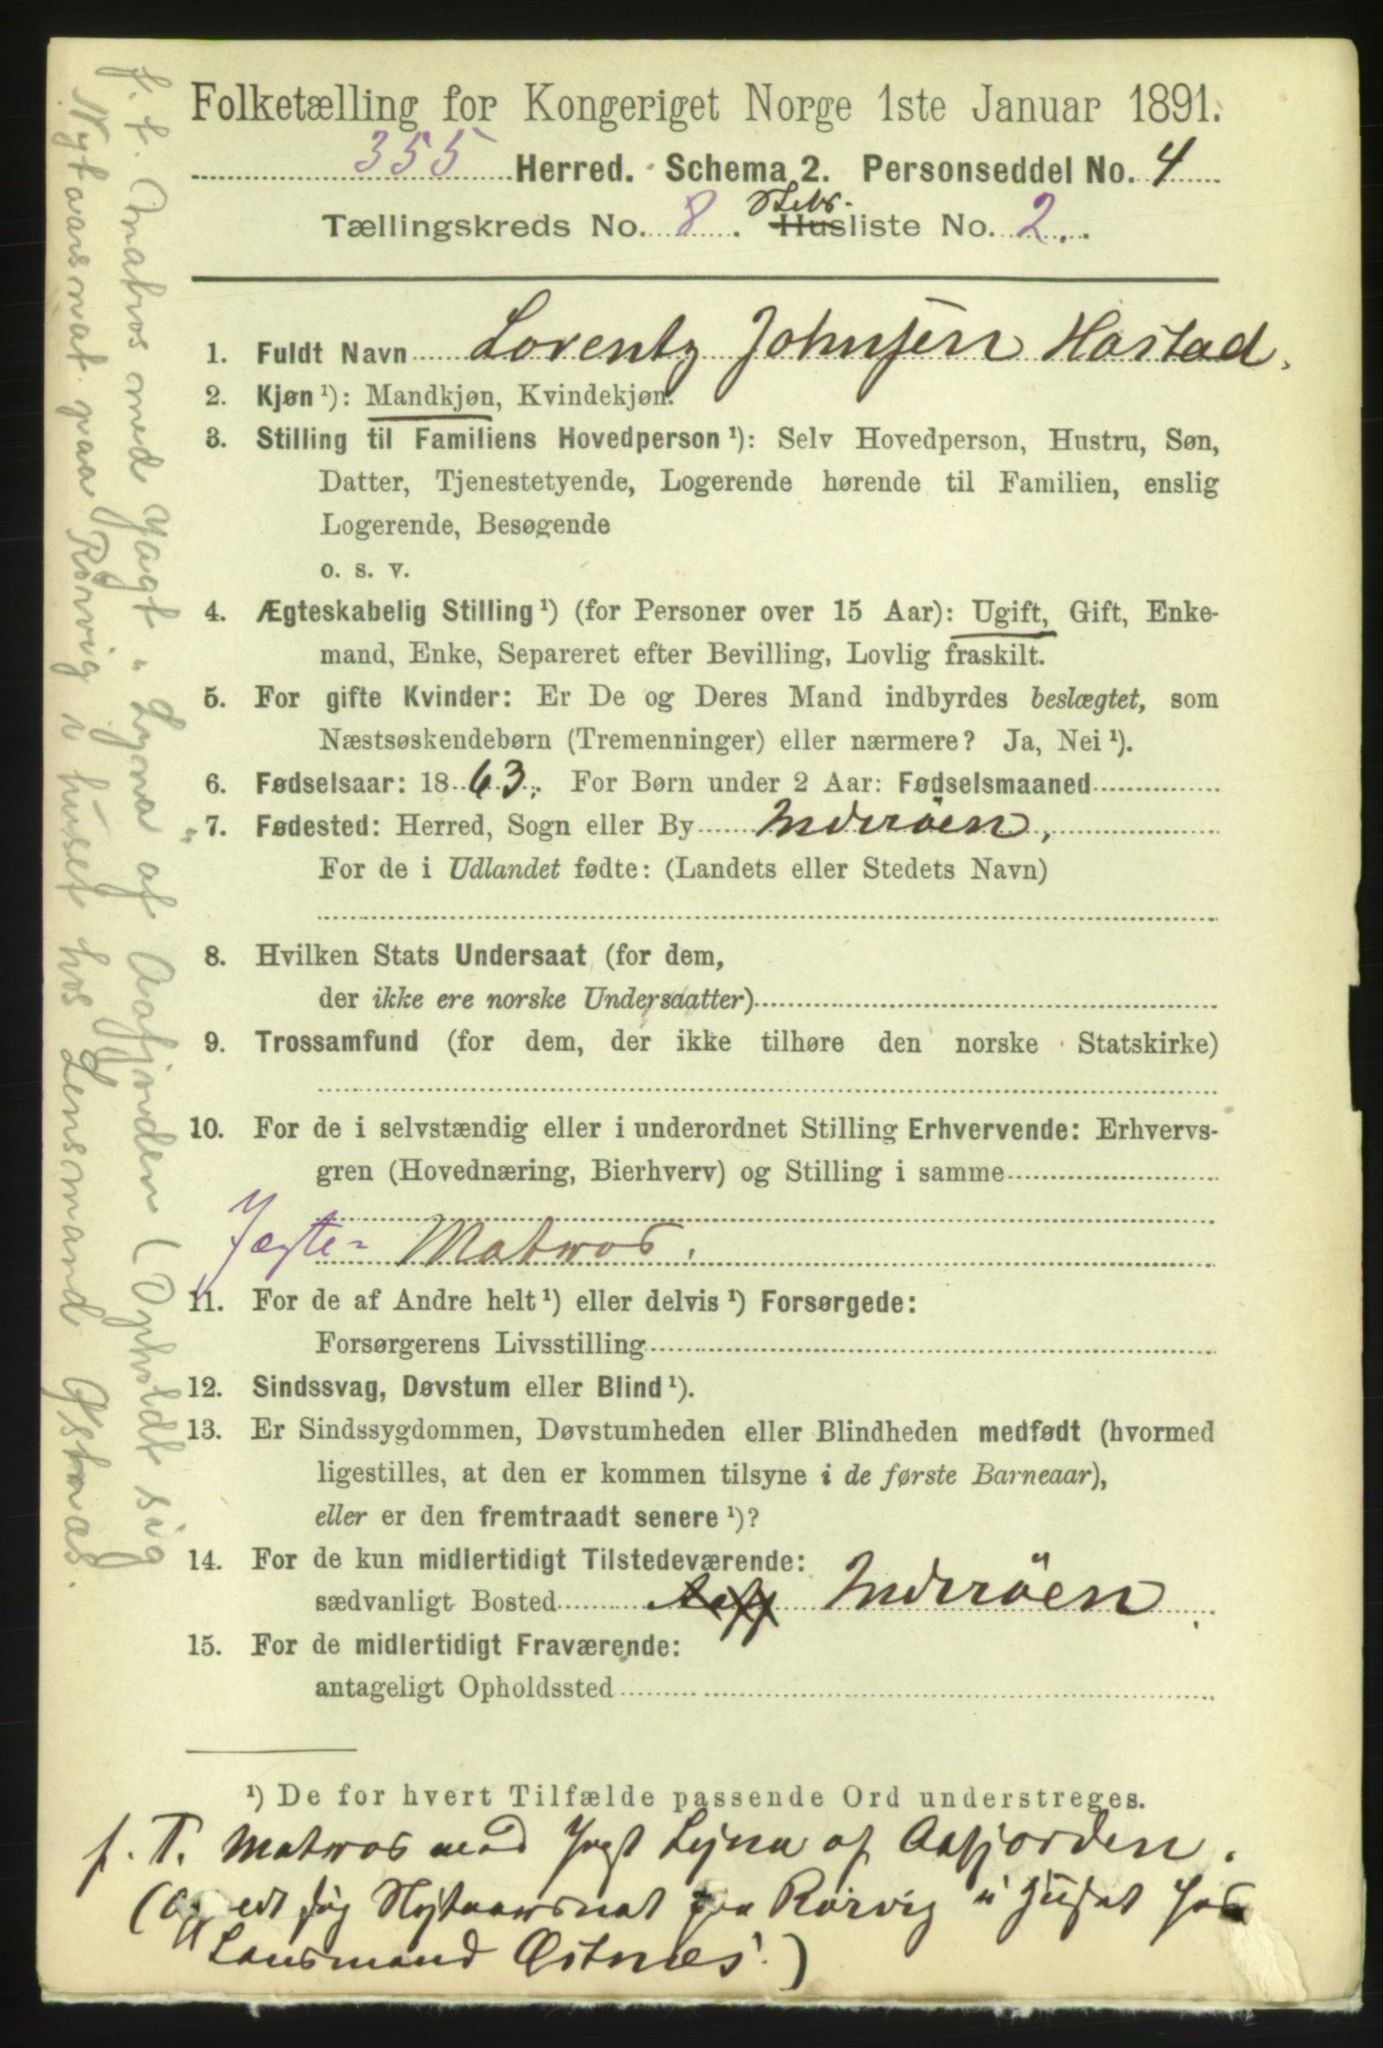 Folketælling for Kongeriget Norge 1ste Januar 1891.
355 Herred. Schema 2. Personseddel No. 4
Skbs.
Tællingskreds No. 8. Husliste No. 2.
1. Fuldt Navn Lorentz Johnsen Hastad.
2. Kjøn ¹): Mandkjøn, Kvindekjøn.
3. Stilling til Familiens Hovedperson ¹): Selv Hovedperson, Hustru, Søn,
Datter, Tjenestetyende, Logerende hørende til Familien, enslig
Logerende, Besøgende
o. s. v.
4. Ægteskabelig Stilling ¹) (for Personer over 15 Aar): Ugift, Gift, Enke-
mand, Enke, Separeret efter Bevilling, Lovlig fraskilt.
5. For gifte Kvinder: Er De og Deres Mand indbyrdes beslægtet, som
Næstsøskendebørn (Tremenninger) eller nærmere? Ja, Nei ¹).
6. Fødselsaar: 1863. For Børn under 2 Aar: Fødselsmaaned
7. Fødested: Herred, Sogn eller By Inderöen,
For de i Udlandet fødte: (Landets eller Stedets Navn)
8. Hvilken Stats Undersaat (for dem,
der ikke ere norske Undersaatter)
9. Trossamfund (for dem, der ikke tilhøre den norske Statskirke)
10. For de i selvstændig eller i underordnet Stilling Erhvervende: Erhvervs-
gren (Hovednæring, Bierhverv) og Stilling i samme
Jægte- Matros.
11. For de af Andre helt ¹) eller delvis ¹) Forsørgede:
Forsørgerens Livsstilling
12. Sindssvag, Døvstum eller Blind ¹).
13. Er Sindssygdommen, Døvstumheden eller Blindheden medfødt (hvormed
ligestilles, at den er kommen tilsyne i de første Barneaar),
eller er den fremtraadt senere ¹)?
14. For de kun midlertidigt Tilstedeværende:
sædvanligt Bosted Inderöen.
15. For de midlertidigt Fraværende:
antageligt Opholdssted
¹) De for hvert Tilfælde passende Ord understreges.
f. T. Matros med Jagt Lyna af Aafjorden.
sig Nytaarsnat paa Rörvig i Huset hos
Lensmand Östnæs.)
f. t. Matros med Yagt "Lyna" af Aafjorden (Opholdt sig
Nytaarsnat paa Rörvig i huset hos Lensmand Østnæs.